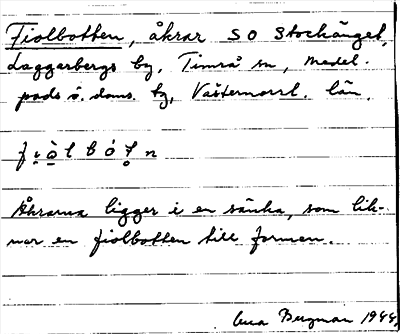 Fiolbotten, åkrar SO Stockänget,
Laggarbergs by, Timrå sn, Medel-
pads ö. doms. tg, Västernorrl. län.
Åkrarna ligger i en sänka, som lik-
nar en fiolbotten till formen.
Bergman 1944.